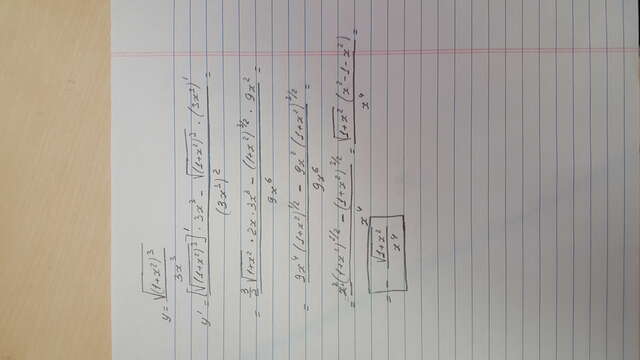 y = √((1+x²)³) / 3x³
y' = ([√((1+x²)³)]' · 3x³ − √((1+x²)³) · (3x³)') / (3x³)² =
= (3/2 √(1+x²) · 2x · 3x³ − (1+x²)^(3/2) · 9x²) / 9x⁶ =
= (9x⁴ (1+x²)^(1/2) − 9x² (1+x²)^(3/2)) / 9x⁶ =
= (x²(1+x²)^(1/2) − (1+x²)^(3/2)) / x⁴ = √(1+x²) (x²−1−x²) / x⁴ =
= − √(1+x²) / x⁴